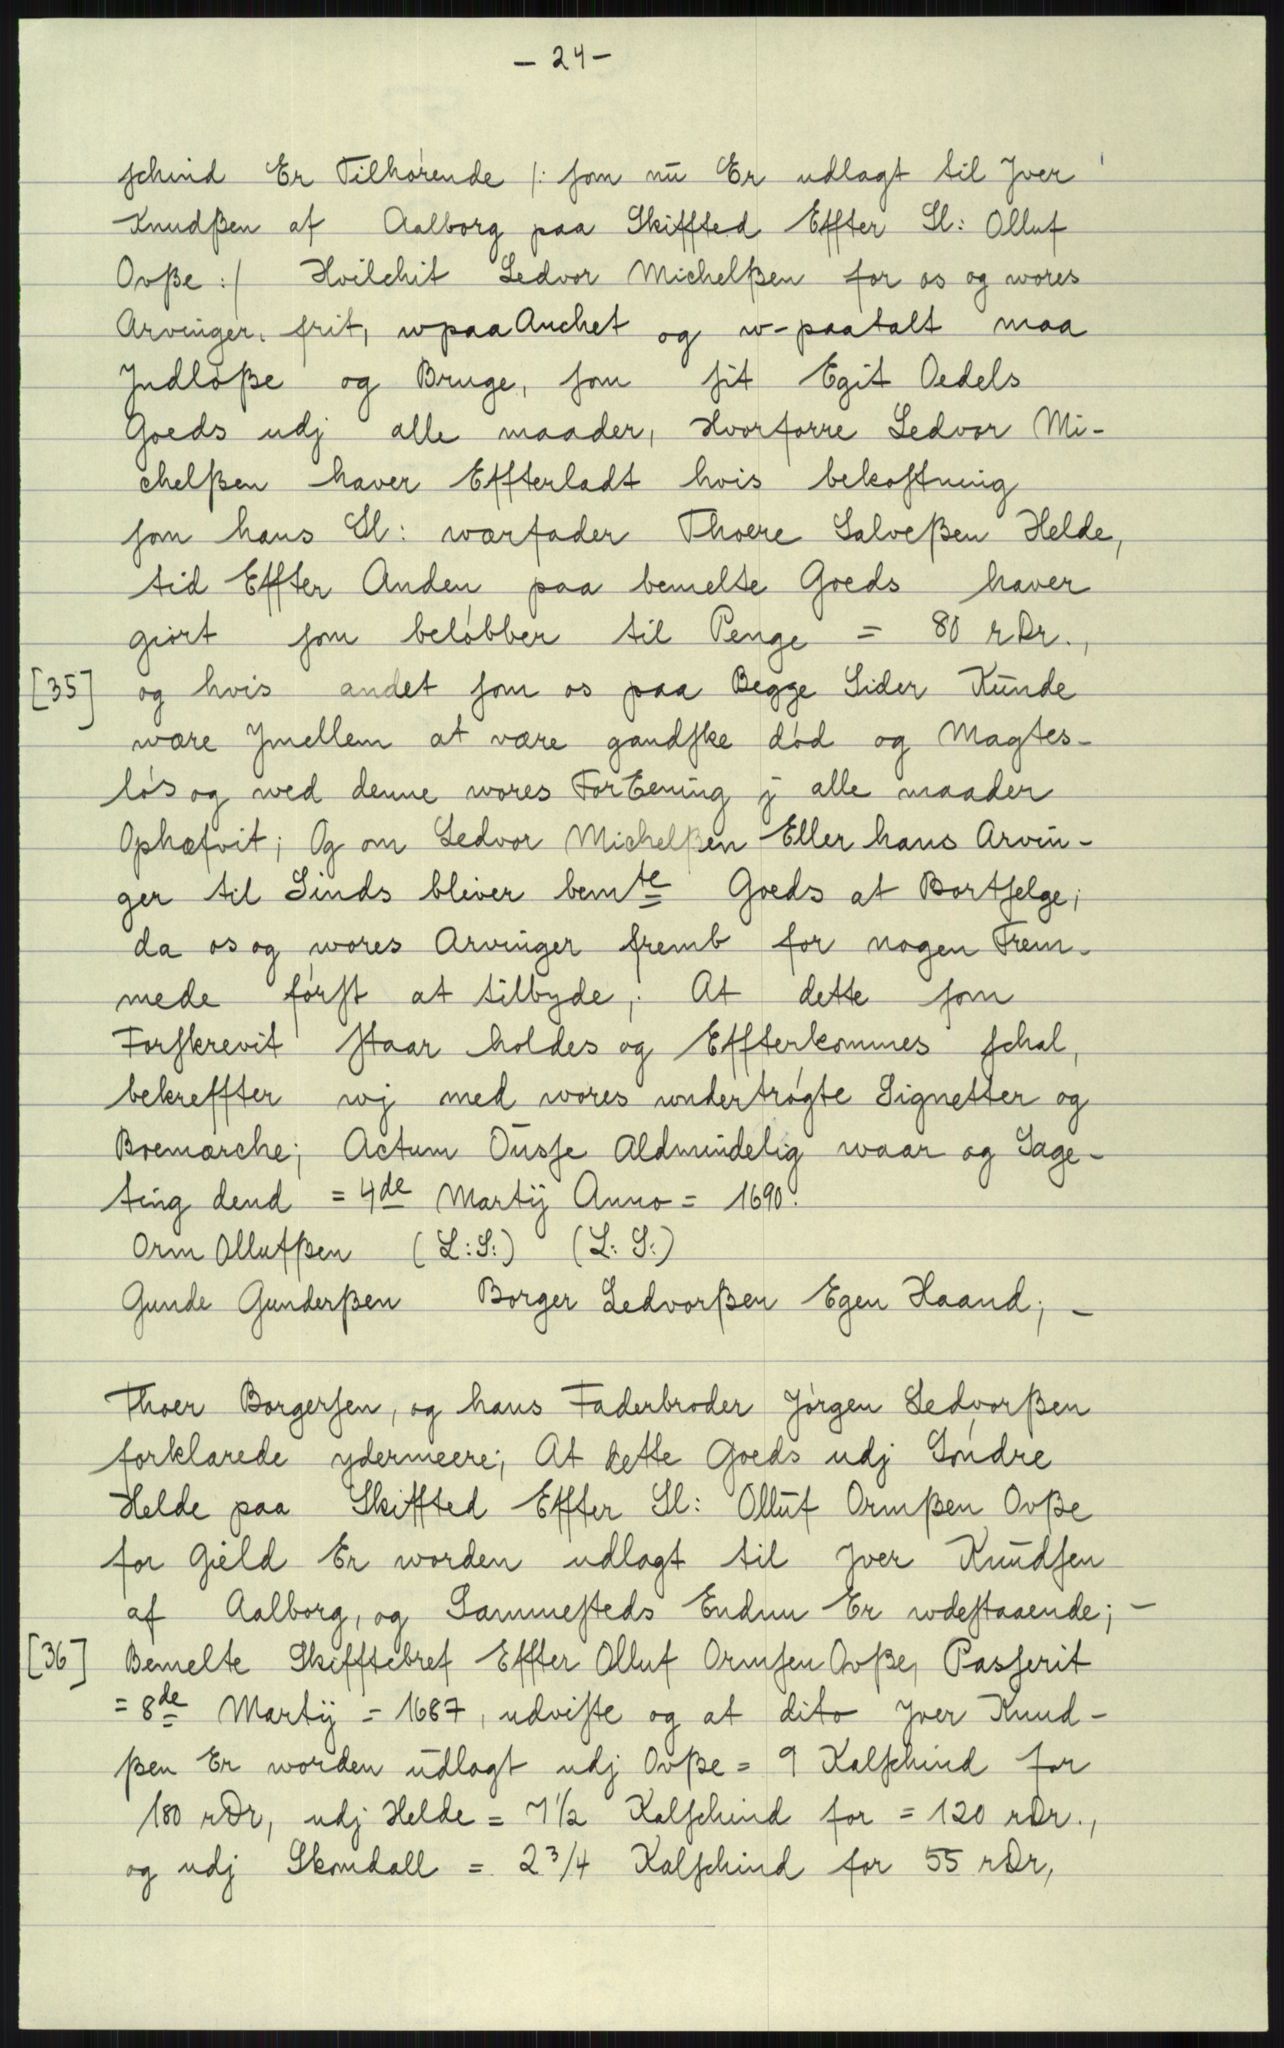 - 24 -
schind Er Tilhørende /: som nu Er udlagt til Jver
Knudßen af Aalborg paa Skiffted Effter Sl: Olluf
Ovße :/ Hvilchit Sedvor Michelßen for os og wores
Arvinger. frit, wpaaAnchet og w-paatalt maa
Jndløße og Bruge, som sit Egit Oedels
Goeds udj alle maader, Hvorforre Sedvor Mi-
chelßen haver Effterladt hvis bekostning
som hans Sl: wærfader Thoere Salveßen Helde,
tid Effter Anden paa bemelte Goeds haver
giort som beløbber til Penge = 80 rDr.,
[35] og hvis andet som os paa Begge Sider Kunde
wære Jmellem at være gandske død og Magtes-
løs og wed denne wores ForEening j alle maader
Ophæfvit; Og om Sedvor Michelßen Eller hans Arvin-
ger til Sinds bliver bemte Goeds at Bortselge;
da os og wores Arvinger fremb for nogen Frem-
mede først at tilbyde; At dette som
Forskrevit staar holdes og Effterkommes schal,
bekreffter wj med wores undertrøgte Signetter og
Boemærche; Actum Ousse Aldmindelig waar og Sage-
ting dend = 4de Martij Anno = 1690.
Orm Ollufßen (L:S:) (L:S:)
Gunde Gunderßen Borger Sedvorßen Egen Haand; -
Thoer Borgersen, og hans Faderbroder Jørgen Sedvorßen
forklarede ydermeere; At dette Goeds udj Søndre
Helde paa Skiffted Effter Sl: Olluf Ormßen Ovße
for Gield Er worden udlagt til Jver Knudsen
af Aalborg, og Sammesteds Endnu Er wdestaaende; -
[36] Bemelte Skifftebref Effter Olluf Ormsen Ovße, Passerit
= 8de Martij = 1687, udviste og at dito Jver Knud-
ßen Er worden udlagt udj Ovße = 9 Kalschind for
180 rDr, udj Helde = 7 1/2 Kalschind for = 120 rDr.,
og udj Skomdall = 2 3/4 Kalschind for 55 rDr,